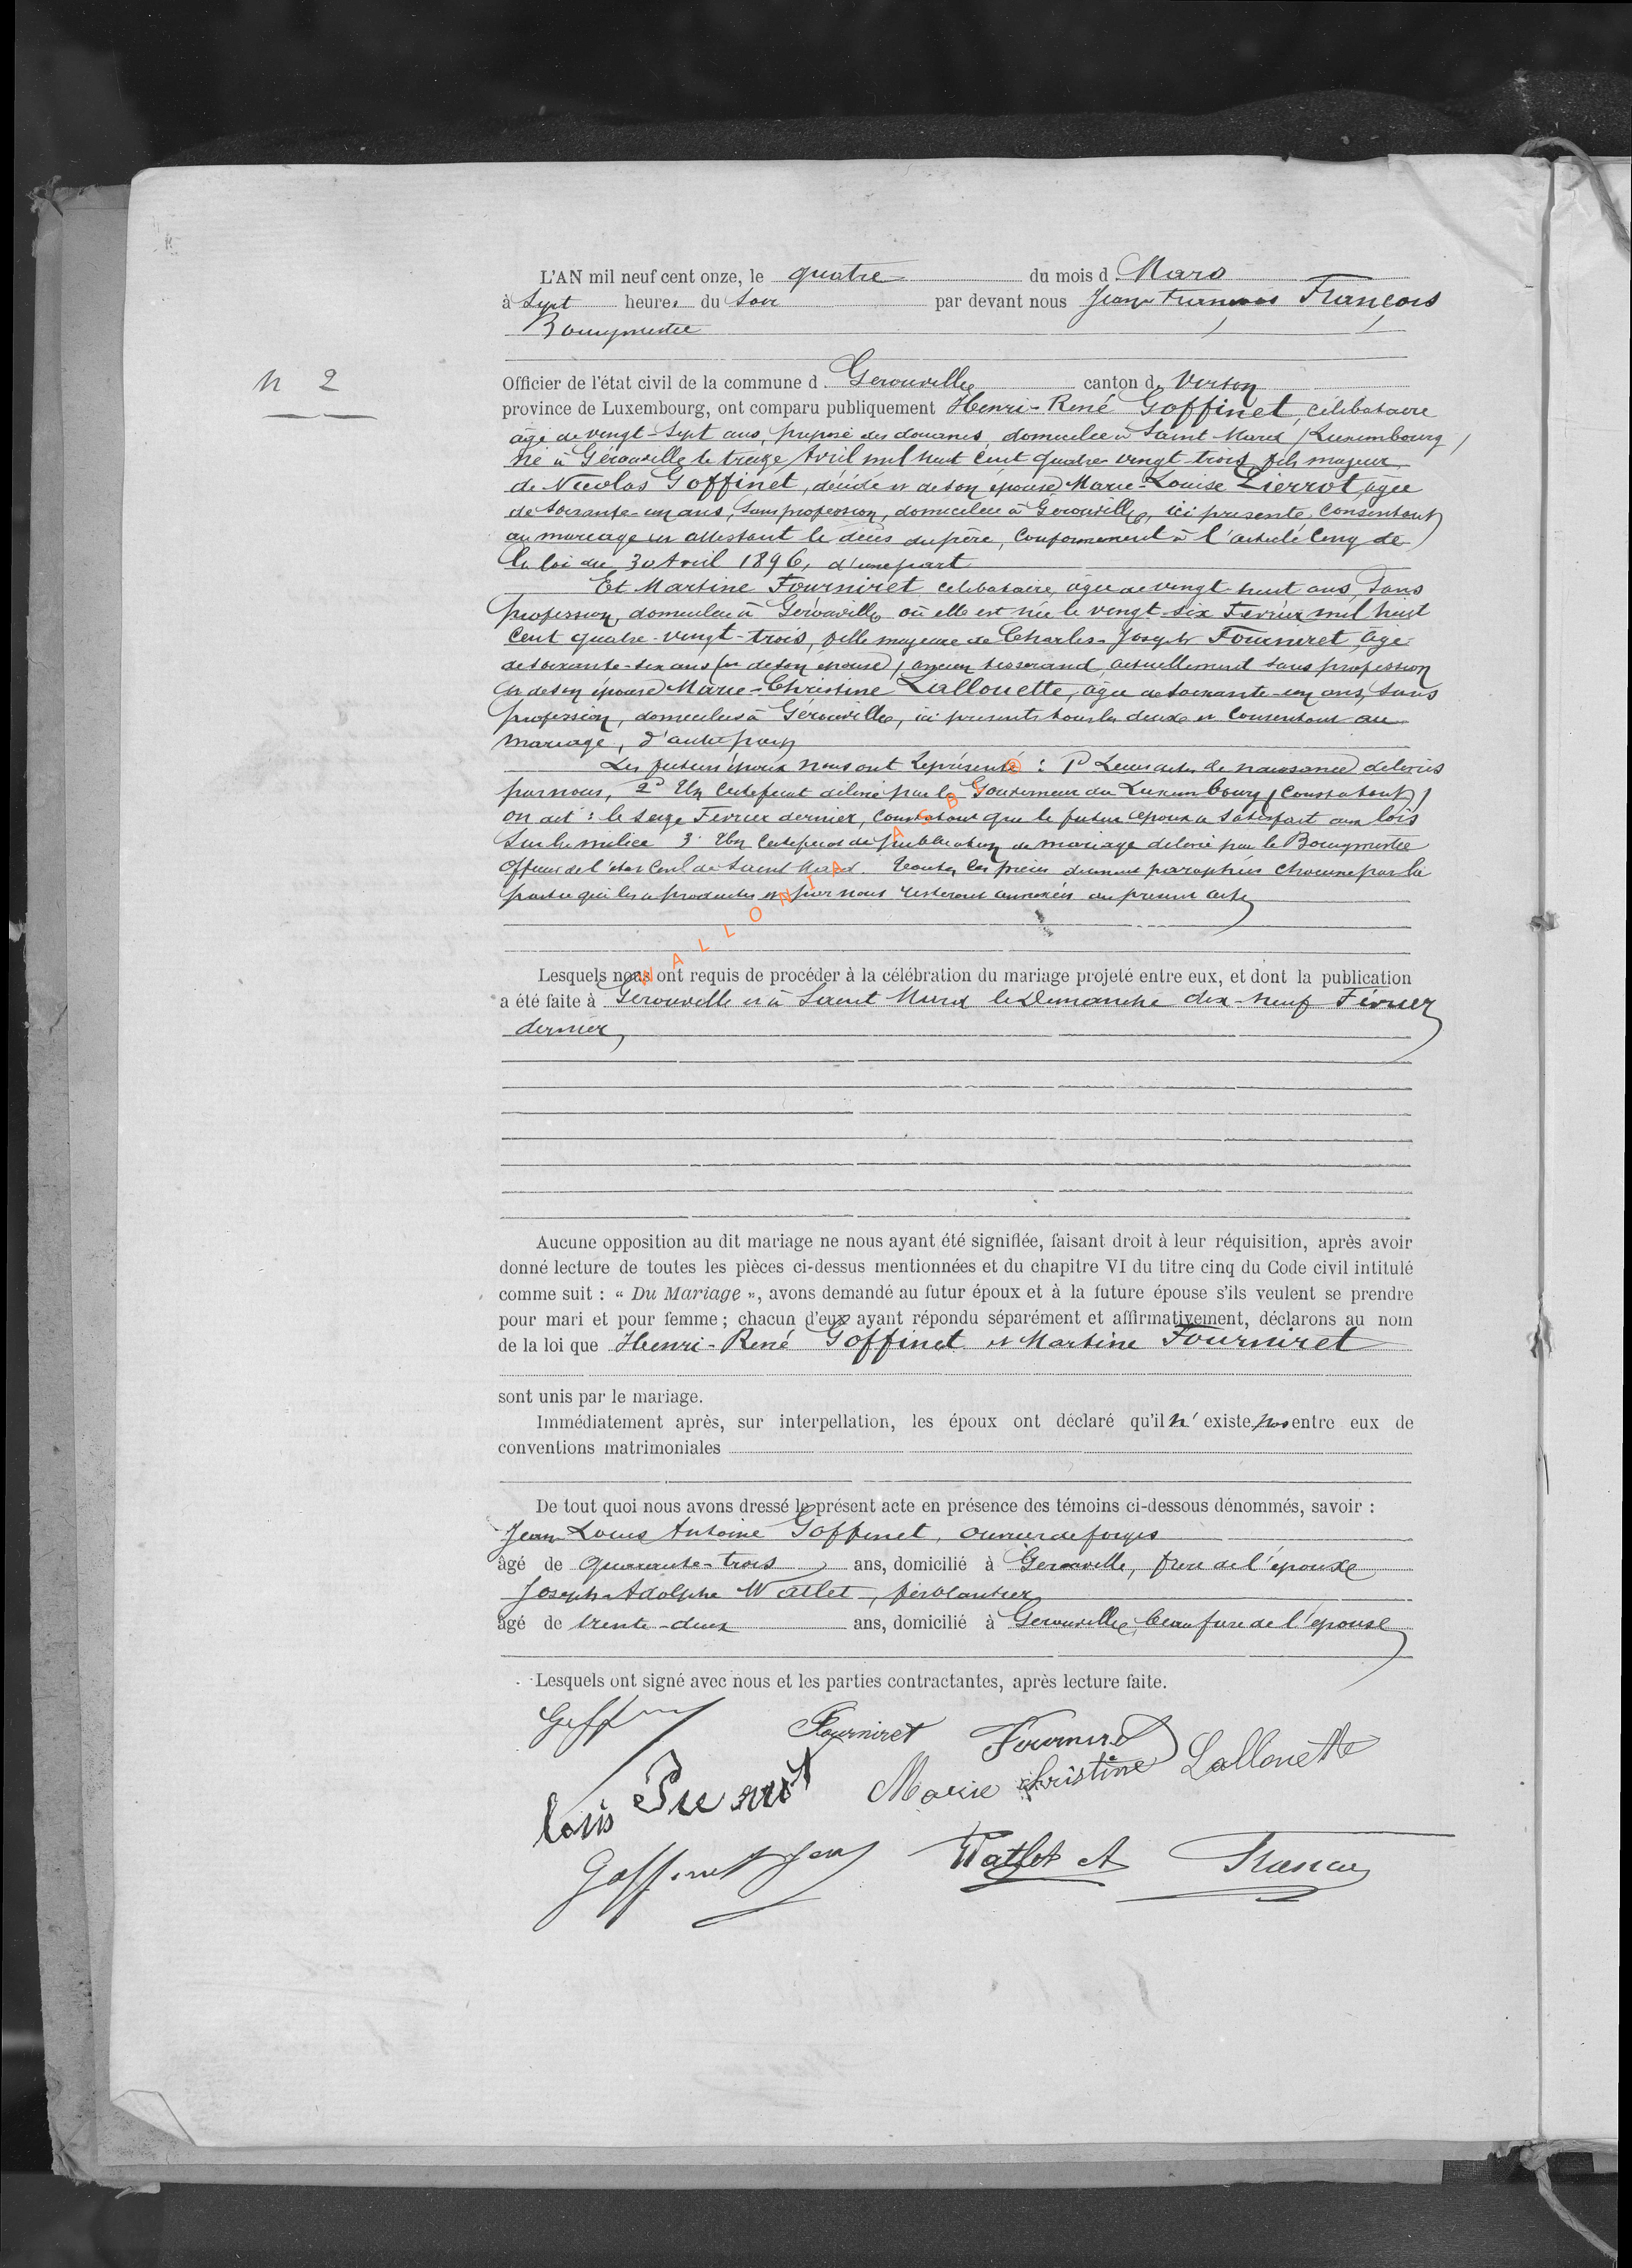 L'AN mil neuf cent onze, le quatre du mois d Mars
à Sept heures du Soir par devant nous Jean François François
Bourgmestre
N 2
Officier de l'état civil de la commune d Gerouville canton de Virton
province de Luxembourg, ont comparu publiquement Henri-René Goffinet, célibataire
âgé de vingt-sept ans, préposé des douanes, domicilié à Saint Mard (Luxembourg)
né à Gérouville le treize Avril mil huit cent quatre vingt trois, fils majeur
de Nicolas Goffinet, décédé et de son épouse Marie-Louise Pierrot, âgée
de soixante-un ans, sans profession, domiciliée à Gérouville, ici présente, consentant
au mariage et attestant le décès du père, conformément à l'article cinq de
la loi du 30 Avril 1896, d'une part
Et Martine Fourniret célibataire, âgée de vingt-huit ans, sans
profession, domiciliée à Gérouville où elle est née le vingt-six Février mil huit
cent quatre-vingt-trois, fille majeure de Charles-Joseph Fourniret, âgé
de soixante-six ans (et de son épouse) ancien tisserand, actuellement sans profession
et de son épouse Marie-Christine Lallouette, âgée de soixante-un ans, sans
profession, domiciliés à Gérouville, ici présents tous les deux et consentant au
mariage, d'autre part
Les futurs époux nous ont représenté : 1° Leurs actes de naissance délivrés
par nous, 2° Un certificat délivré par le Gouverneur du Luxembourg (constatant)
on dit : le seize Février dernier, constatant que le futur époux a satisfait aux lois
sur la milice 3° Un certificat de publication de mariage délivré par le Bourgmestre
officier de l'état civil de Saint Mard. Toutes les pièces dûment paraphées chacune par la
partie qui les a produites et par nous resteront annexées au présent acte
WALLONIA ASBL ®
Lesquels nous ont requis de procéder à la célébration du mariage projeté entre eux, et dont la publication
a été faite à Gerouville et à Saint Mard le Dimanche dix-neuf Février
dernier,
Aucune opposition au dit mariage ne nous ayant été signifiée, faisant droit à leur réquisition, après avoir
donné lecture de toutes les pièces ci-dessus mentionnées et du chapitre VI du titre cinq du Code civil intitulé
comme suit : « Du Mariage », avons demandé au futur époux et à la future épouse s'ils veulent se prendre
pour mari et pour femme ; chacun d'eux ayant répondu séparément et affirmativement, déclarons au nom
de la loi que Henri-René Goffinet et Martine Fourniret
sont unis par le mariage.
Immédiatement après, sur interpellation, les époux ont déclaré qu'il n' existe pas entre eux de
conventions matrimoniales
De tout quoi nous avons dressé le présent acte en présence des témoins ci-dessous dénommés, savoir :
Jean Louis Antoine Goffinet, ouvrier de forges
âgé de quarante-trois ans, domicilié à Gerouville, frère de l'époux
Joseph-Adolphe Watlet, ferblantier
âgé de trente-deux ans, domicilié à Gerouville, beau frère de l'épouse
Lesquels ont signé avec nous et les parties contractantes, après lecture faite.
Goffinet Fourniret Fourniret
louis Pierrot Marie christine Lallouette
Goffinet Jean Watlet A François